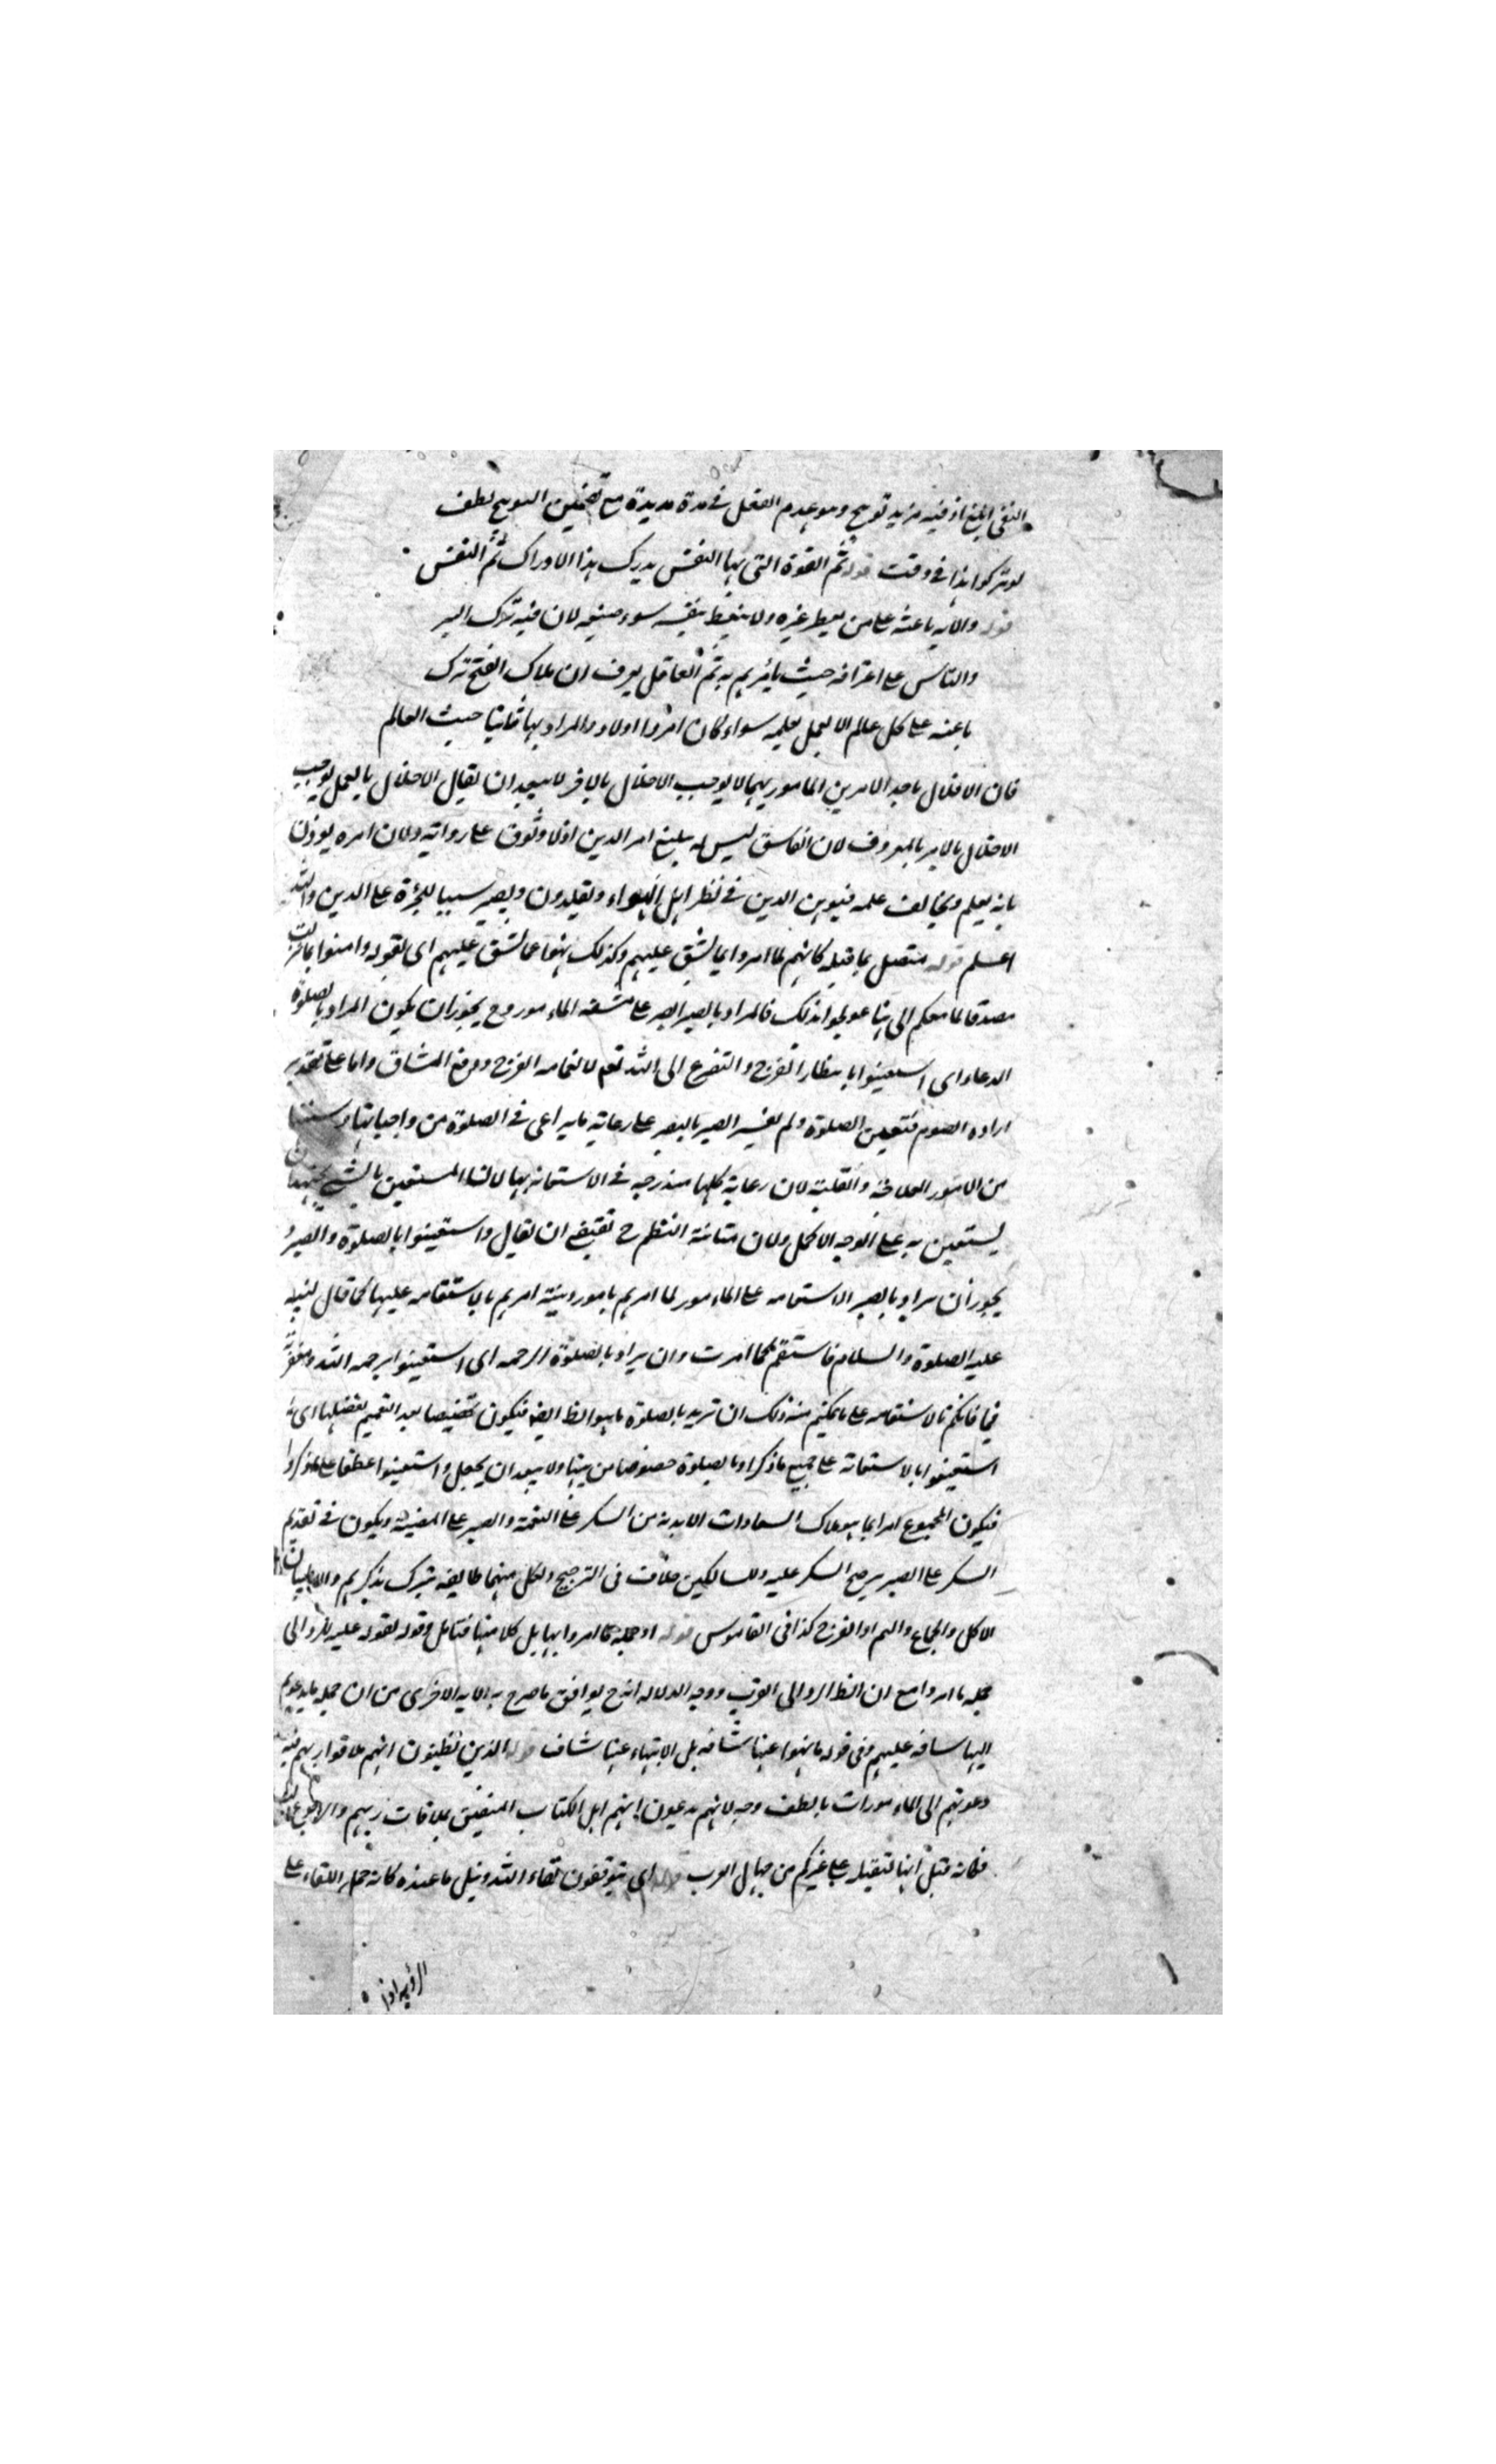 النفى ابلغ اذ فيه مزيد توبيخ وهو عدم العقل فى مدة مديدة مع تضمين التوبيخ لطف
لو تركوا هذا فى وقت قوله ثم القوة التى بها النفس يدرك هذا الادراك ثم النفس
قوله والآية ناعية على من يعظ غيره ولا يتعظ بنفسه سوء صنيعه لان فيه ترك البر
والناس على اعترافه حيث يأمرهم به ثم العاقل يعرف ان ملاك القبح ترك
ناعية على كل عالم لا يعمل بعلمه سواء كان امرا اولا والمراد بها ثانيا حيث العالم
فان الاخلال باحد الامرين المامور بهما لا يوجب الاخلال بالاخر لا يبعد ان يقال الاخلال بالعمل يوجب
الاخلال بالامر بالمعروف لان الفاسق ليس له تبليغ امر الدين اذ لا وثوق على روايته ولان امره يوذن
بانه يعلم ويخالف علمه فيوهن الدين فى نظر اهل الهواء ويقلدون ويصير سببا للجرءة على الدين والله
اعلم قوله متصل بما قبله كانهم لما امروا بما يشق عليهم وكذلك نهوا عما يشق عليهم اى بقوله وامنوا بما انزلت
مصدقا لما معكم الى هنا عولجوا بذلك فالمراد بالصبر الصبر على مشقة المامور وح يجوز ان يكون المراد بالصلوة
الدعاء اى استعينوا بانتظار الفرج والتضرع الى الله تعالى لانجامه الفرج ورفع المشاق واما على تقدير
ارادة الصوم فتعين الصلوة ولم يفسر الصبر بالصبر على رعاية ما يراعى فى الصلوة من واجباتها وسننها
من الامور العلاجية والقلبية لان رعاية كلها مندرجة فى الاستعانة بها لان المستعين بالشئ يجتهد ان
يستعين به على الوجه الاكمل ولان متانة النظم ح تقتضى ان يقال واستعينوا بالصلوة والصبر و
يجوز ان يراد بالصبر الاستقامة على المامور لما امرهم بامور دينية امرهم بالاستقامة عليها كما قال لنبيه
عليه الصلوة والسلام فاستقم كما امرت وان يراد بالصلوة الرحمة اى استعينوا برحمة الله ومغفرته
فيما فاتكم بالاستقامة على ما يمكنكم منه ذلك ان تريد بالصلوة ما هو الظ ايضا فيكون تخصيصا بعد التعميم لفضلها اى
استعينوا بالاستعانة على جميع ما ذكر وبالصلوة خصوصا من بينها ولا يبعد ان يجعل واستعينوا عطفا على اذكروا
فيكون المجموع امرا بما هو ملاك السعادات الابدية من الشكر على النعمة والصبر على المصيبة ويكون فى تقديم
الشكر على الصبر ترجيح الشكر عليه وللسالكين خلاف فى الترجيح ولكل منهما طايفة يتبرك بذكرهم والاطيبان
الاكل والجماع والفم او الفرج كذا فى القاموس قوله او جملة ما امروا بها بل كلا منها فتامل وقوله لقوله عليه
جملة ما امروا مع ان النظر الى القرب ووجه الدلالة انه ح يوافق ما صرح به الآية الاخرى من ان جملة ما يدعوهم
اليها شاقة عليهم وفى قوله ما نهوا عنها شاقة بل الانتهاء عنها شاق قوله الذين يظنون انهم ملاقوا ربهم فيه
دعوتهم الى المامورات بالطف وجه لانهم يدعون انهم اهل الكتاب المتيقن بملاقات ربهم
فكانه قيل انها لثقيلة على غيركم من جهال العرب قوله اى يتوقعون لقاء الله ونيل ما عنده كانه حمل اللقاء على
الرؤية اذ